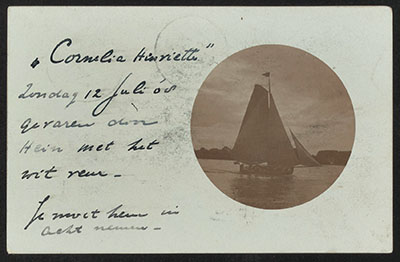 „Cornelia Henriette"
Zondag 12 Juli 08
gevaren door
Hein met het
wit
Je moet hem in
acht nemen.